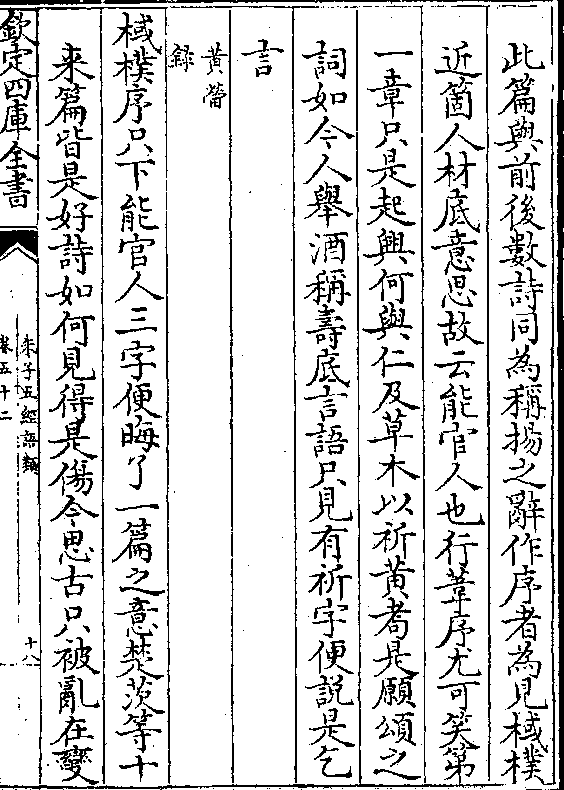 此篇與前後數詩同為稱揚之辭作序者為見棫樸
近箇人材底意思故云能官人也行葦序尤可笑第
一章只是起興何與仁及草木以祈黃耉是願頌之
詞如今人舉酒稱壽底言語只見有祈字便說是乞
言
黃㽦
録
棫樸序只下能官人三字便晦了一篇之意楚茨等十
来篇皆是好詩如何見得是傷今思古只被亂在變
欽定四庫全書
朱子五經語類
卷五十二
十八